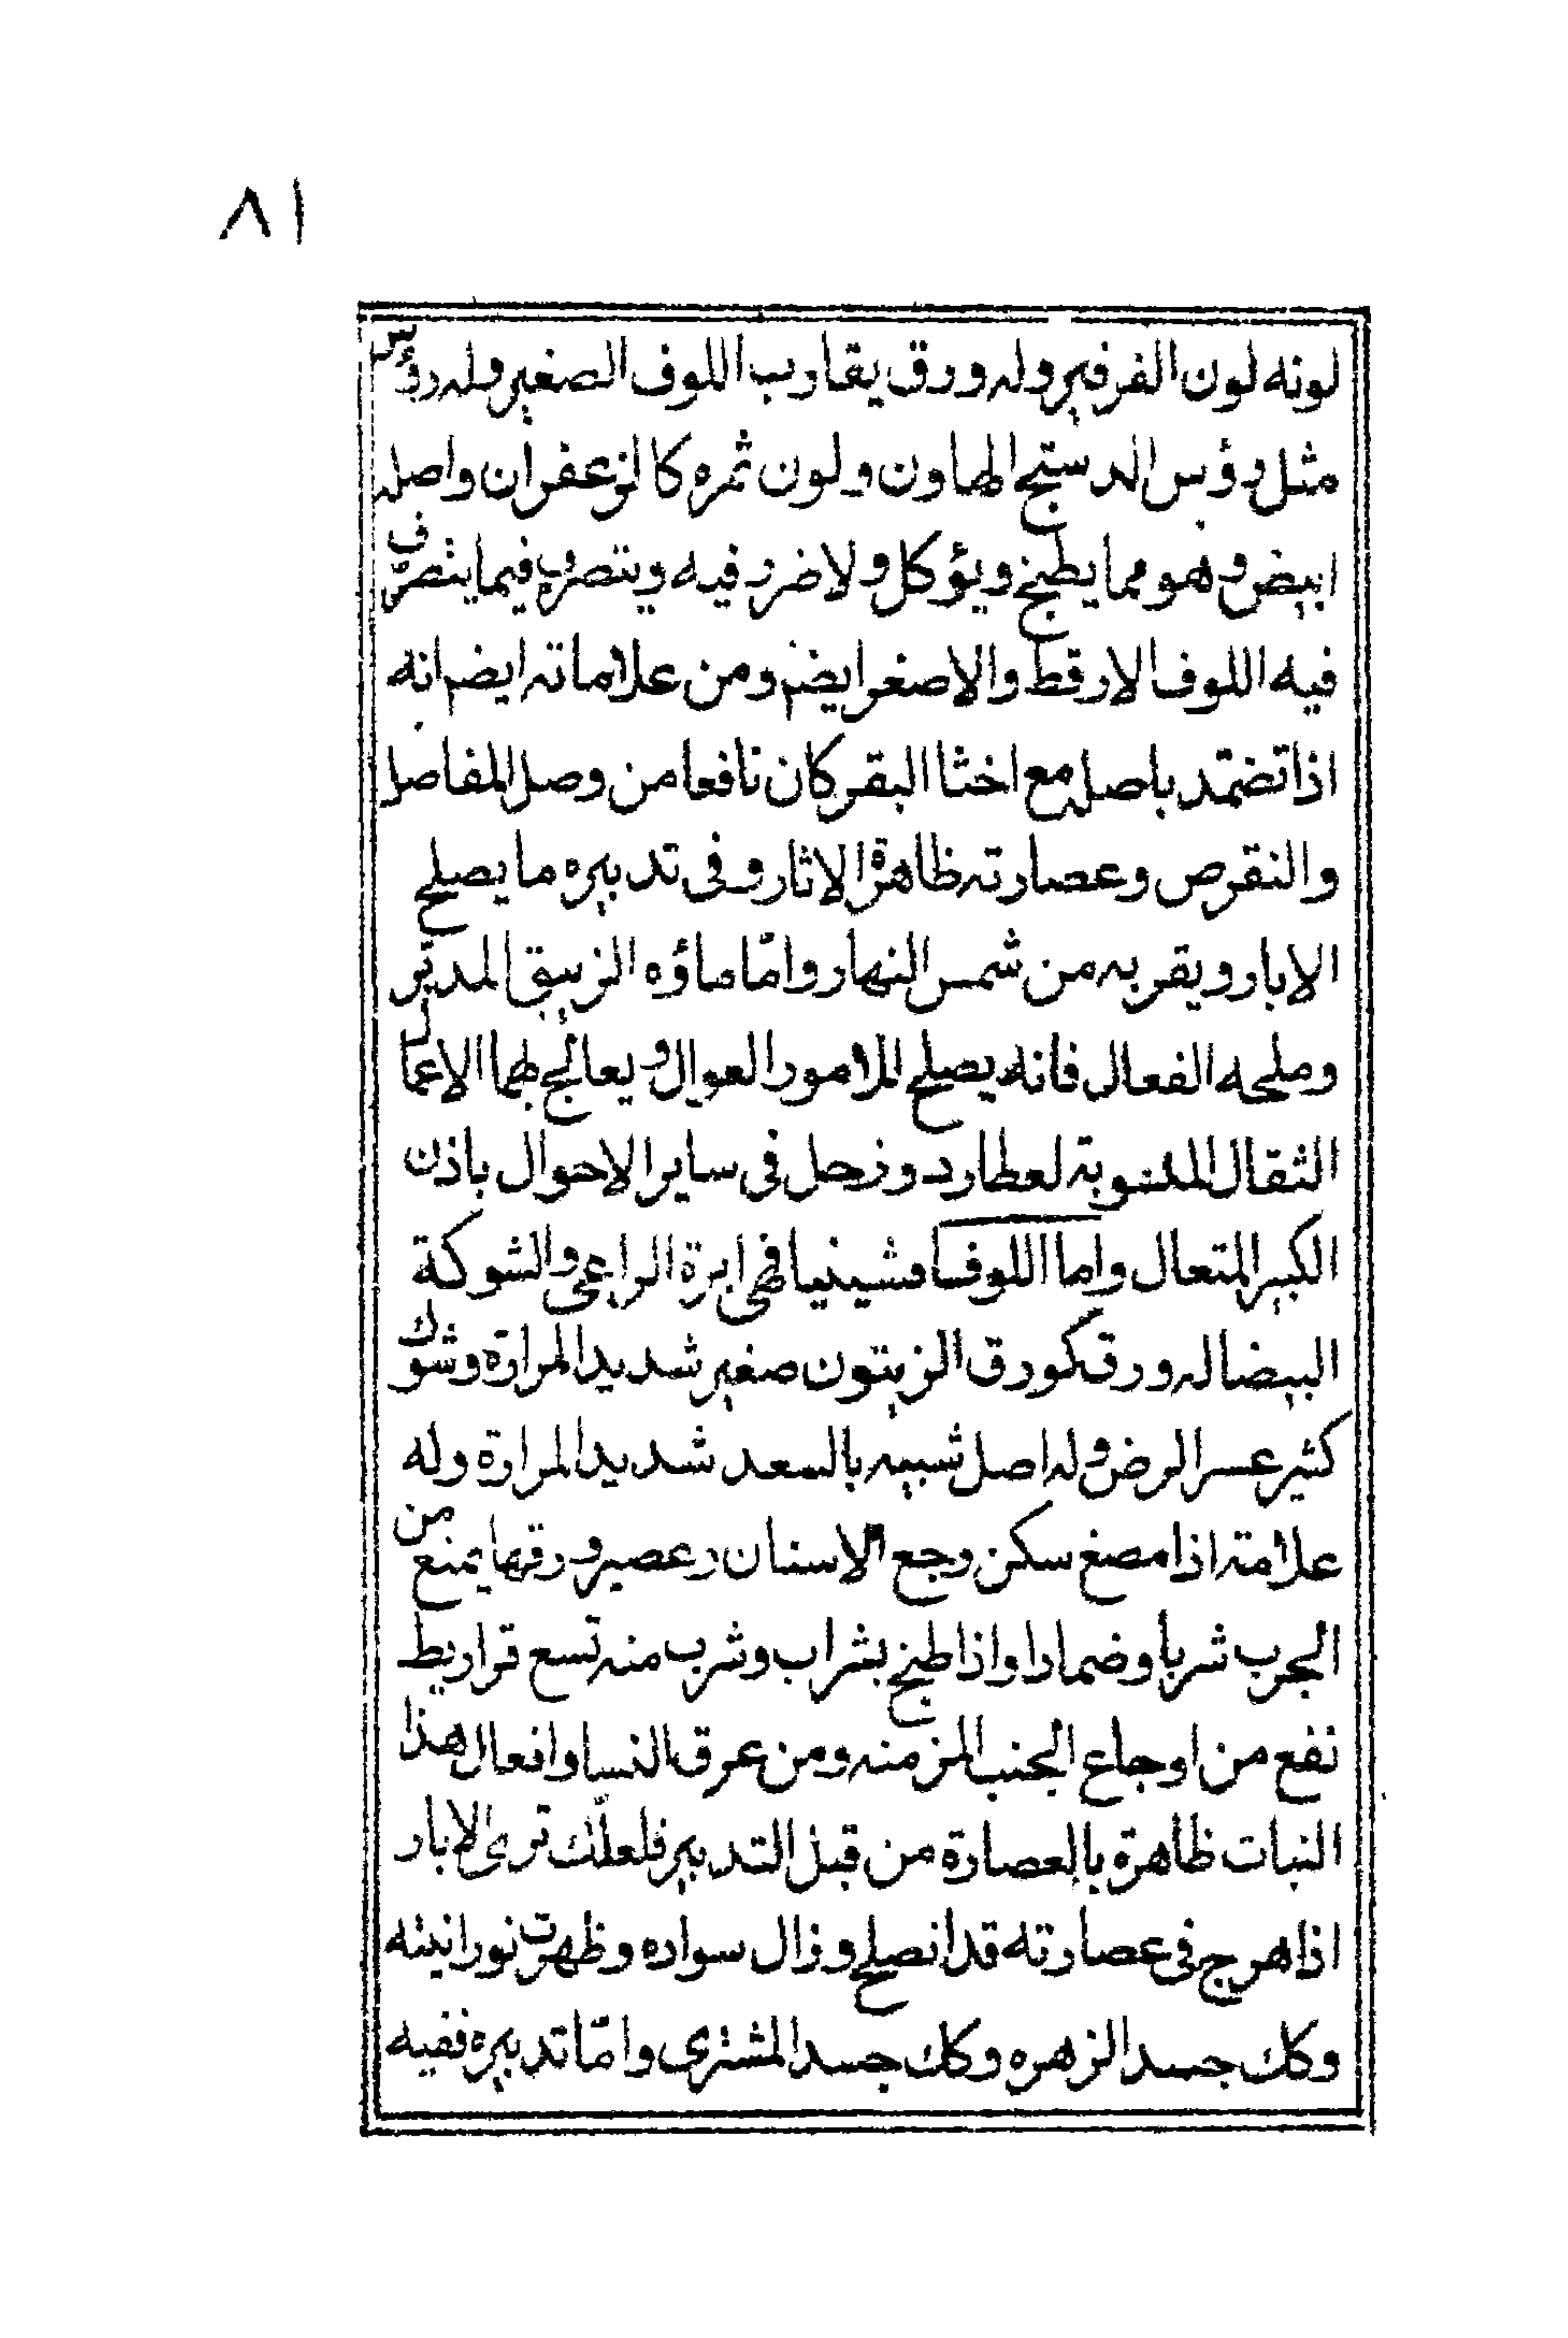 ٨١
لونه لون الفرفير وله ورق يقارب اللوف الصغير وله رؤس
مثل رؤس الدستج الهاون ولون ثمره كالزعفران واصله
ابيض وهو مما يطبخ ويؤكل ولا ضرر فيه ويتصرف فيما يتصرف
فيه اللوف الارقط والاصغر ايضم ومن علاماته ايضم انه
اذا تضمد باصله مع اخثا البقر كان نافعا من وصل المفاصل
والنقرص وعصارته ظاهرة الاثار وفى تدبيره ما يصلح
الابار ويقربه من شمس النهار وامّا ماؤه الزيبق المدبّر
وملحه الفعال فانه يصلح للامور العوال ويعالج بهما الاعمال
الثقال المنسوبة لعطارد وزحل فى ساير الاحوال باذن
الكبير المتعال واما اللوفسافشينيا فهى ابرة الراعى والشوكة
البيضا له ورق كورق الزيتون صغير شديد المرارة وشوك
كثير عسر الرض وله اصل شبيه بالسعد شديد المرارة وله
علامة اذا مضغ سكن وجع الاسنان وعصير ورقها يمنع من
الجرب شربا وضمادا واذا طبخ بشراب وشرب منه تسع قراريط
نفع من اوجاع الجنب المزمنه ومن عرق النسا وافعال هذا
النبات ظاهرة بالعصارة من قبل التدبير فلعلّك ترى الابار
اذا هرج فى عصارته قد انصلح وزال سواده وظهرت نورانيته
وكك جسد الزهره وكك جسد المشترى وامّا تدبيره ففيه